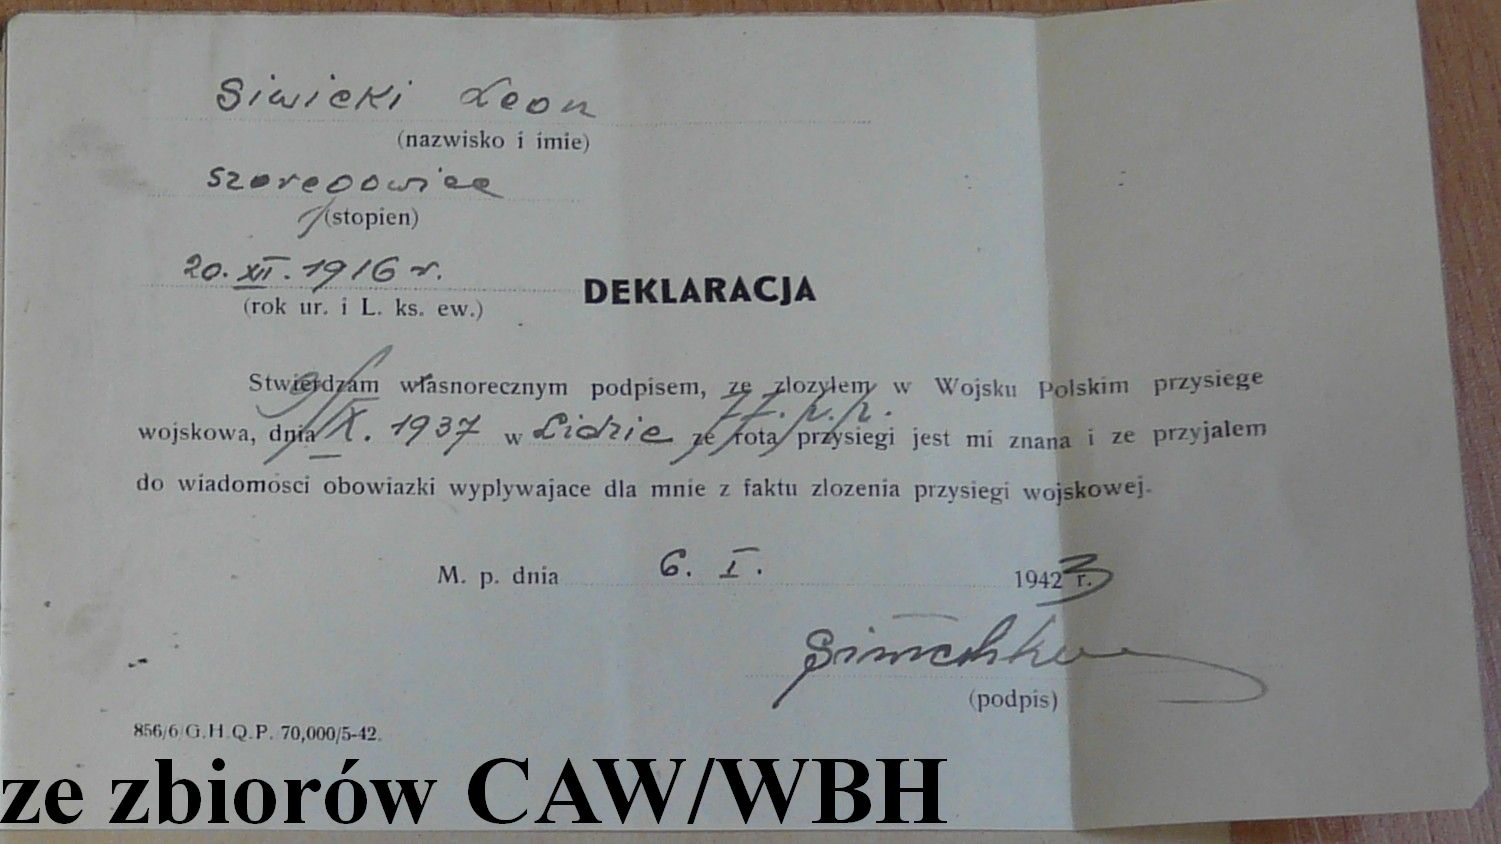 Siwicki Leon
(nazwisko i imie)
szeregowiec
(stopien)
20. XII. 1916 r.
(rok ur. i L. ks. ew.)
DEKLARACJA
Stwierdzam własnorecznym podpisem, ze zlozyłem w Wojsku Polskim przysiege
77. p. p.
wojskowa, dnia X. 1937 w Lidzie ze rota przysiegi jest mi znana i ze przyjalem
do wiadomosci obowiazki wyplywajace dla mnie z faktu zlozenia przysiegi wojskowej.
M. p. dnia 6. I. 19423 r.
(podpis)
856/6/G.H.Q.P. 70,000/5-42.
ze zbiorów CAW/WBH